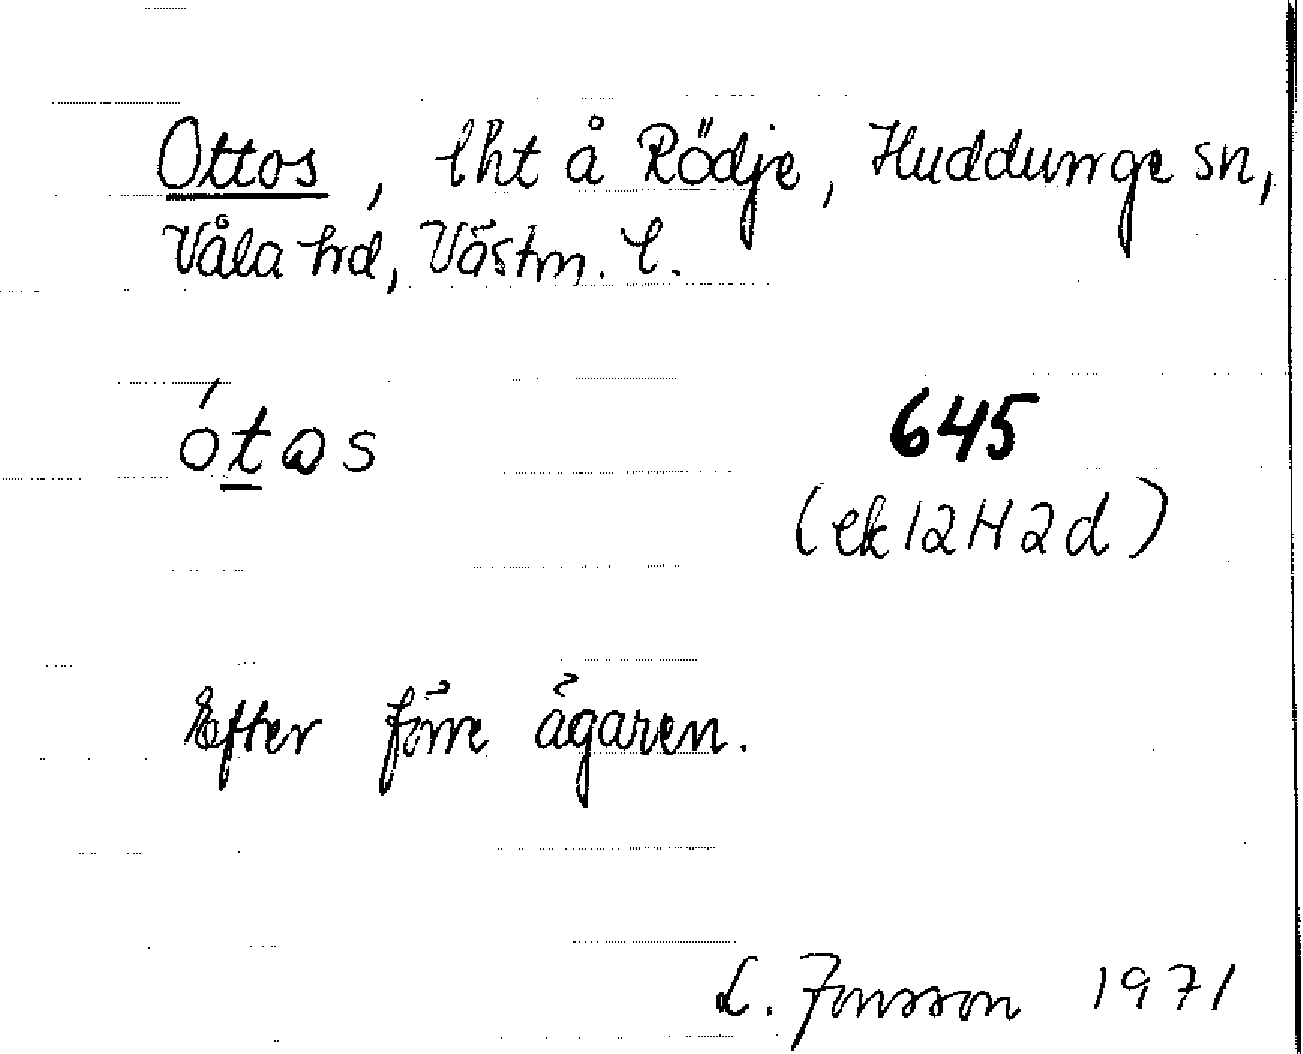 Ottos, lht å Rödje, Huddunge sn,
Våla hd, Västm. l.
ótωs
645
(ek 12H2d)
Efter förre ägaren.
L. Jonsson 1971